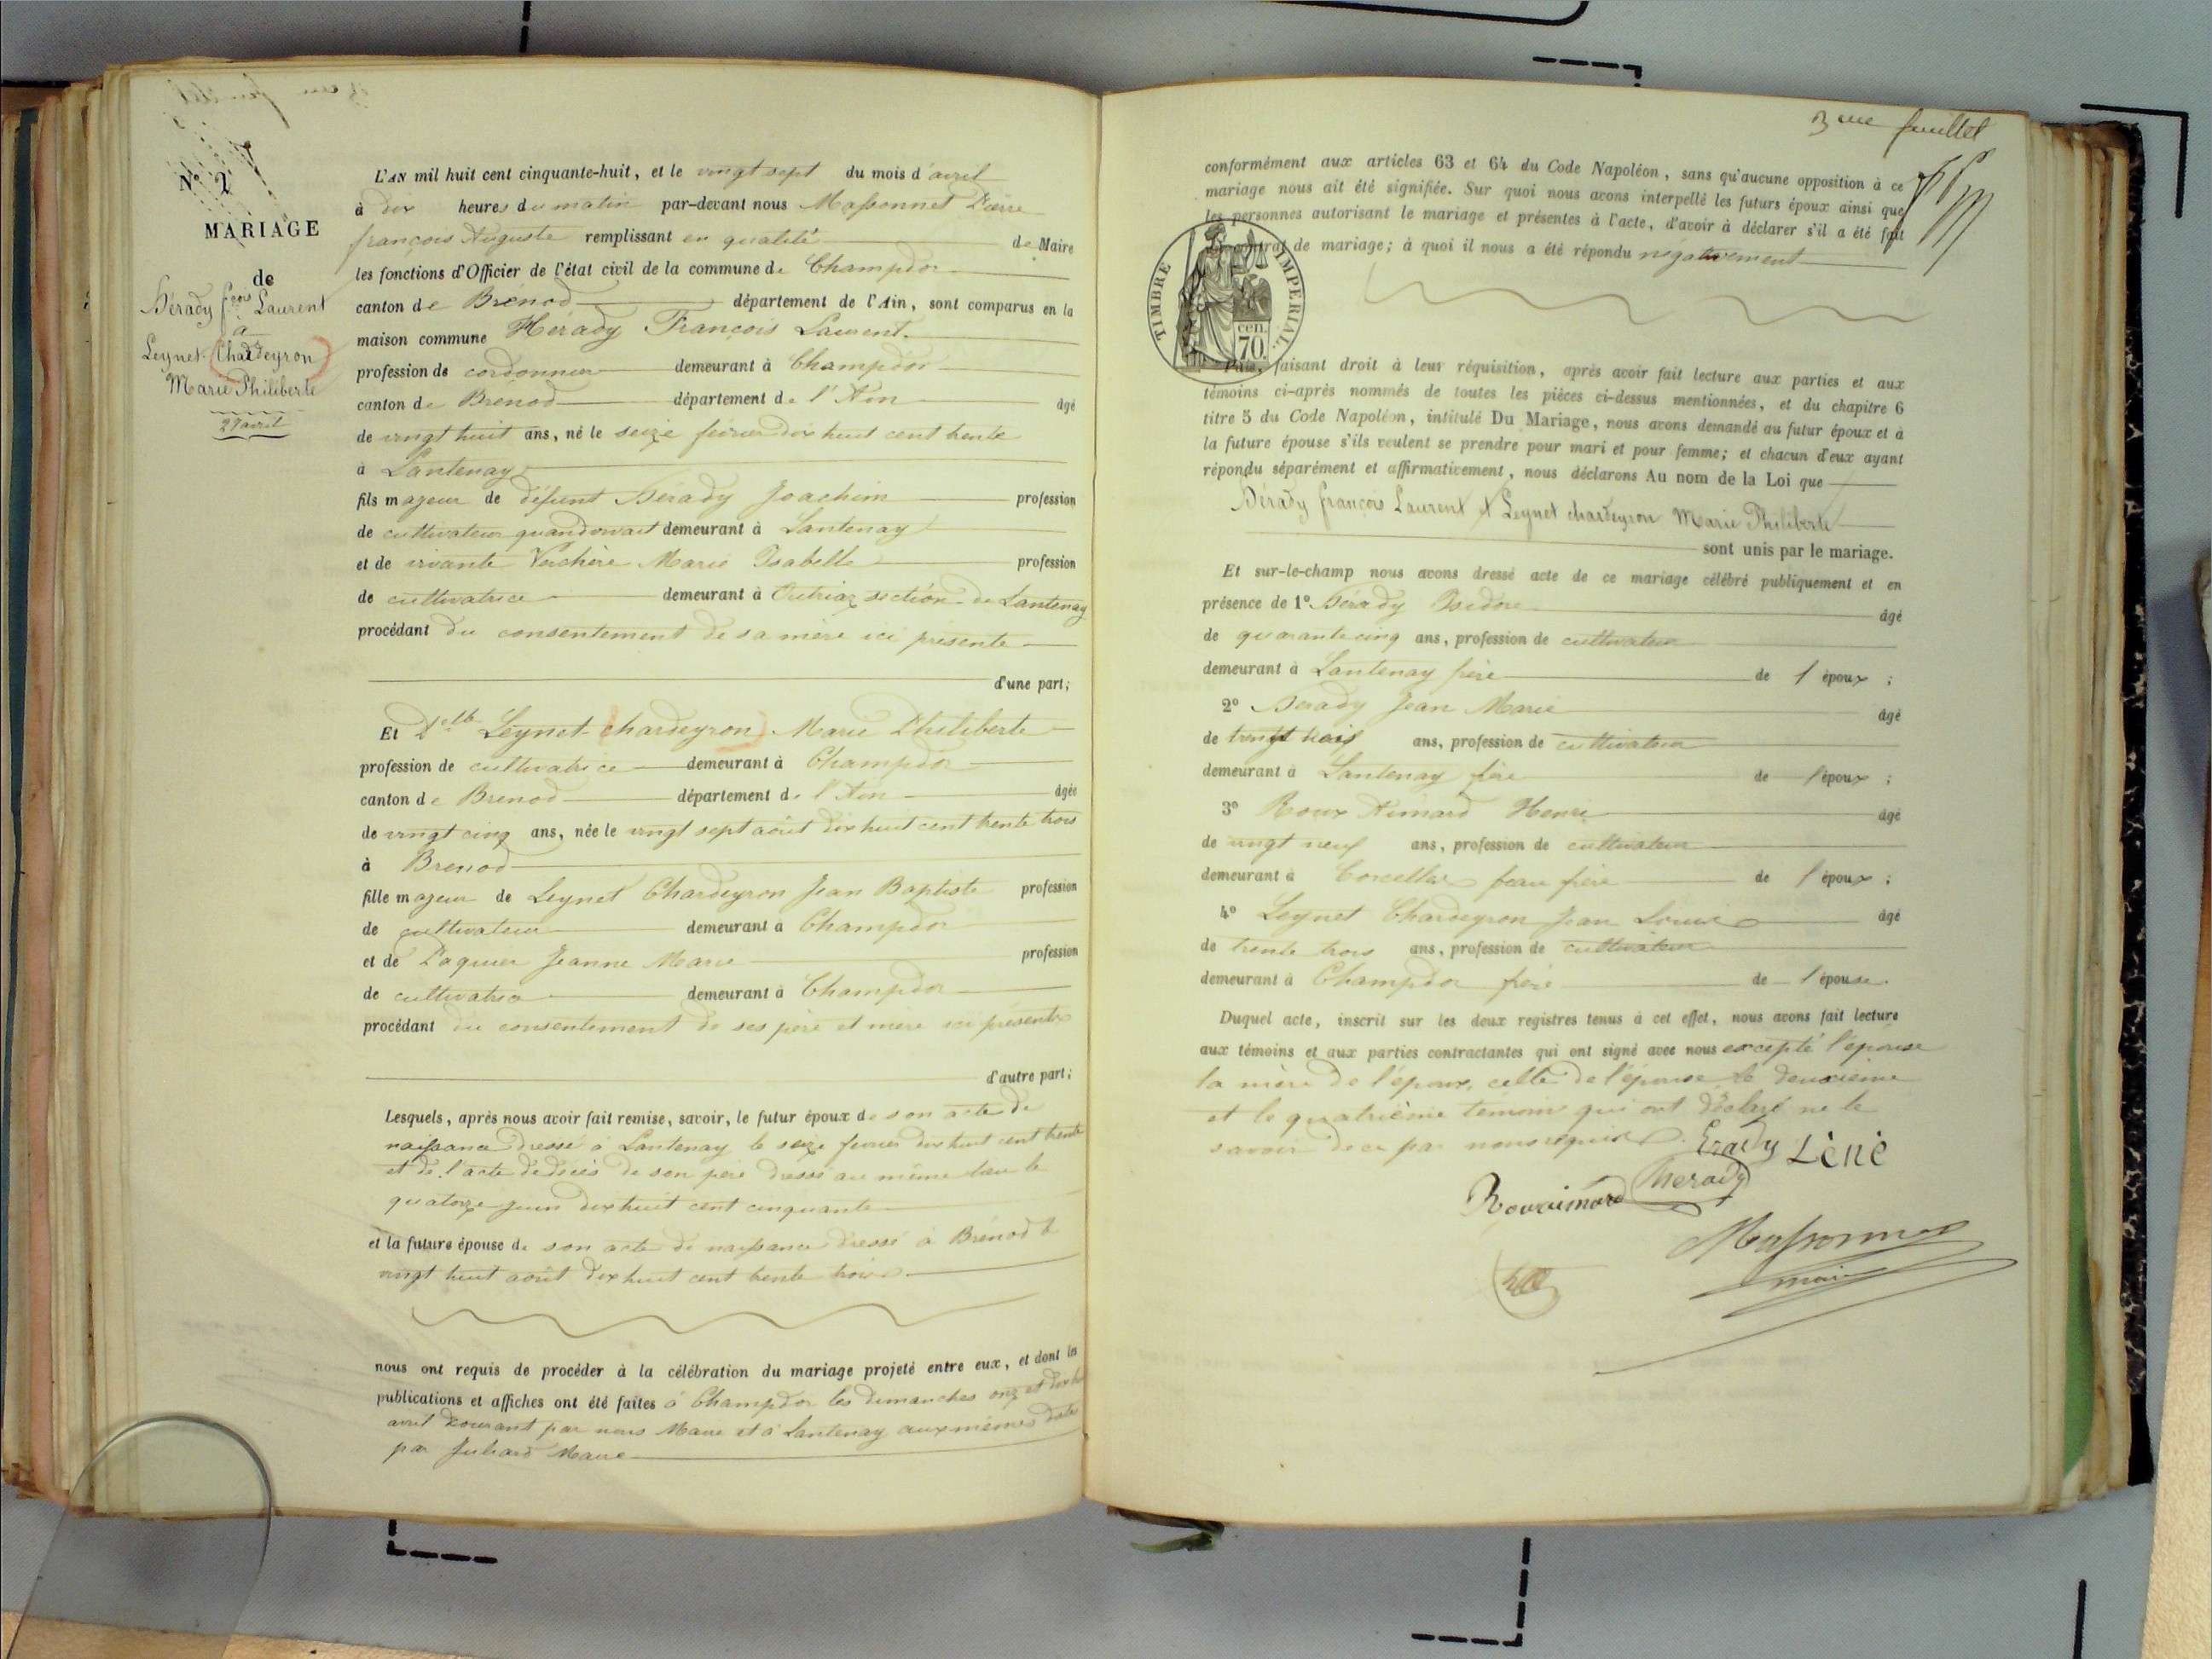 N° 2
MARIAGE
de
Hérady fois Laurent
a
Leynet-Chardeyron
Marie Philiberte
27 avril
L'AN mil huit cent cinquante-huit, et le vingt sept du mois d'avril
à dix heures du matin par-devant nous Massonnet Pierre
françois Auguste remplissant en qualité de Maire
les fonctions d'Officier de l'état civil de la commune de Champdor
canton de Brénod département de l'Ain, sont comparus en la
maison commune Hérady François Laurent
profession de cordonnier demeurant à Champdor
canton de Brenod département de l'Ain âgé
de vingt huit ans, né le seize fevrier dix huit cent trente
à Lantenay
fils majeur de défunt Hérady Joachim profession
de cultivateur quand vivait demeurant à Lantenay
et de vivante Verchère Marie Isabelle profession
de cultivatrice demeurant à Outriaz section de Lantenay
procédant du consentement de sa mère ici présente
d'une part;
Et Delle Leynet Chardeyron Marie Philiberte
profession de cultivatrice demeurant à Champdor
canton de Brenod département de l'Ain âgée
de vingt cinq ans, née le vingt sept août dix huit cent trente trois
à Brenod
fille majeur de Leynet Chardeyron Jean Baptiste profession
de cultivateur demeurant à Champdor
et de Paquier Jeanne Marie profession
de cultivatrice demeurant à Champdor
procédant du consentement de ses père et mère ici présents
d'autre part;
Lesquels, après nous avoir fait remise, savoir, le futur époux de son acte de
naissance dressé à Lantenay le seize fevrier dix huit cent trente
et de l'acte de décès de son père dressé au même lieu le
quatorze juin dix huit cent cinquante
et la future épouse de son acte de naissance dressé à Brénod le
vingt huit août dix huit cent trente trois
nous ont requis de procéder à la célébration du mariage projeté entre eux, et dont les
publications et affiches ont été faites à Champdor les dimanches onze et dix huit
avril courant par nous Maire et à Lantenay aux mêmes dates
par Juhard Maire
3me feuillet
conformément aux articles 63 et 64 du Code Napoléon, sans qu'aucune opposition à ce
mariage nous ait été signifiée. Sur quoi nous avons interpellé les futurs époux ainsi que
les personnes autorisant le mariage et présentes à l'acte, d'avoir à déclarer s'il a été fait
contrat de mariage; à quoi il nous a été répondu négativement
TIMBRE IMPERIAL
70 cen.
Puis, faisant droit à leur réquisition, après avoir fait lecture aux parties et aux
témoins ci-après nommés de toutes les pièces ci-dessus mentionnées, et du chapitre 6
titre 5 du Code Napoléon, intitulé Du Mariage, nous avons demandé au futur époux et à
la future épouse s'ils veulent se prendre pour mari et pour femme; et chacun d'eux ayant
répondu séparément et affirmativement, nous déclarons Au nom de la Loi que
Hérady françois Laurent et Leynet chardeyron Marie Philiberte
sont unis par le mariage.
Et sur-le-champ nous avons dressé acte de ce mariage célébré publiquement et en
présence de 1° Hérady Isidore âgé
de quarante cinq ans, profession de cultivateur
demeurant à Lantenay frère de l'époux ;
2° Hérady Jean Marie âgé
de ans, profession de cultivateur
demeurant à Lantenay frère de l'époux ;
3° Roux Aimard Henri âgé
de vingt neuf ans, profession de cultivateur
demeurant à Corcelles beau frère de l'époux ;
4° Leynet Chardeyron Jean Louis âgé
de trente trois ans, profession de cultivateur
demeurant à Champdor frère de l'épouse.
Duquel acte, inscrit sur les deux registres tenus à cet effet, nous avons fait lecture
aux témoins et aux parties contractantes qui ont signé avec nous excepté l'épouse
la mère de l'époux, celle de l'épouse le deuxième
et le quatrième témoin qui ont déclaré ne le
savoir de ce par nous requis. Erady Lènè
Rouxaimard herady
Massonnet
maire